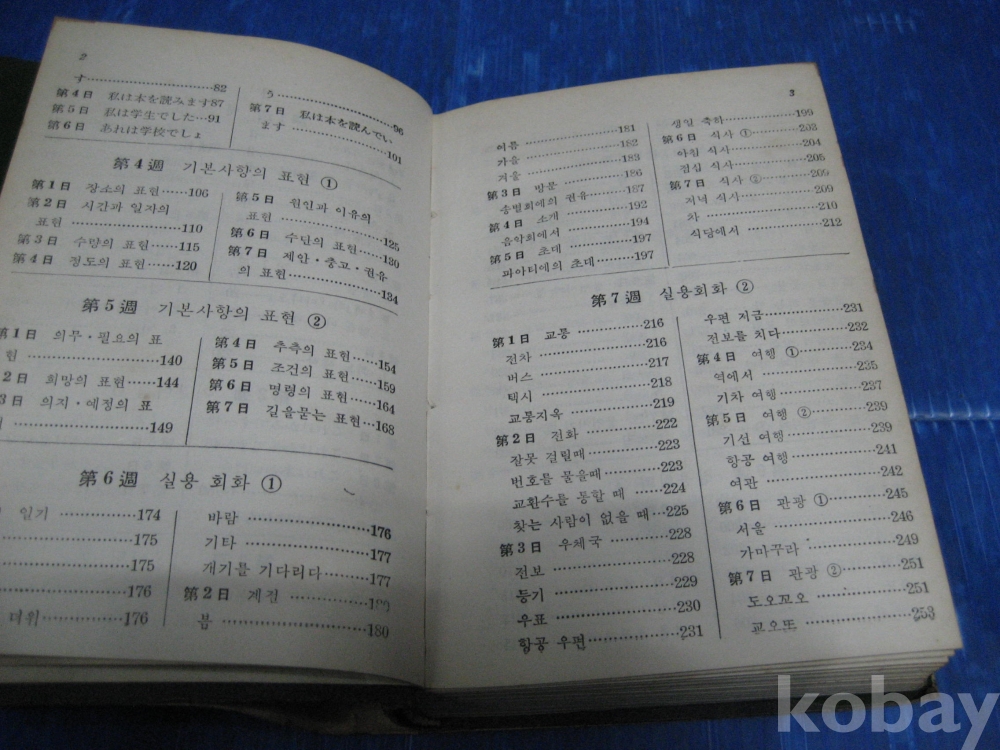 2
す 82
第4日 私は本を読みます87
第5日 私は学生でした 91
第6日 あれは学校でしょ
う 96
第7日 私は本を読んでい
ます 101
第4週 기본사항의 표현 ①
第1日 장소의 표현 106
第2日 시간과 일자의
표현 110
第3日 수량의 표현 115
第4日 정도의 표현 120
第5日 원인과 이유의
표현 125
第6日 수단의 표현 130
第7日 제안·충고·권유
의 표현 134
第5週 기본사항의 표현 ②
第1日 의무·필요의 표
현 140
2日 희망의 표현 144
3日 의지·예정의 표
149
第4日 추측의 표현 154
第5日 조건의 표현 159
第6日 명령의 표현 164
第7日 길을묻는 표현 168
第6週 실용 회화 ①
일기 174
175
175
176
더위 176
바람 176
기타 177
개기를 기다리다 177
第2日 계절
봄 180
3
여름 181
가을 182
겨울 183
第3日 방문 186
송별회에의 권유 187
第4日 소개 192
음악회에서 194
第5日 초대 197
파아티에의 초대 197
생일 축하 199
第6日 식사 ① 203
아침 식사 204
점심 식사 205
第7日 식사 ② 209
저녁 식사 209
차 210
식당에서 212
第7週 실용회화 ②
第1日 교통 216
전차 216
버스 217
택시 218
교통지옥 219
第2日 전화 222
잘못 걸릴때 223
번호를 물을때 223
교환수를 통할 때 224
찾는 사람이 없을 때 225
第3日 우체국 228
전보 228
등기 229
우표 230
항공 우편 231
우편 지급 231
전보를 치다 232
第4日 여행 ① 234
역에서 235
기차 여행 237
第5日 여행 ② 239
기선 여행 239
항공 여행 241
여관 242
第6日 관광 ① 245
서울 246
가마꾸라 249
第7日 관광 ② 251
도오꾜오 251
교오또 253
kobay